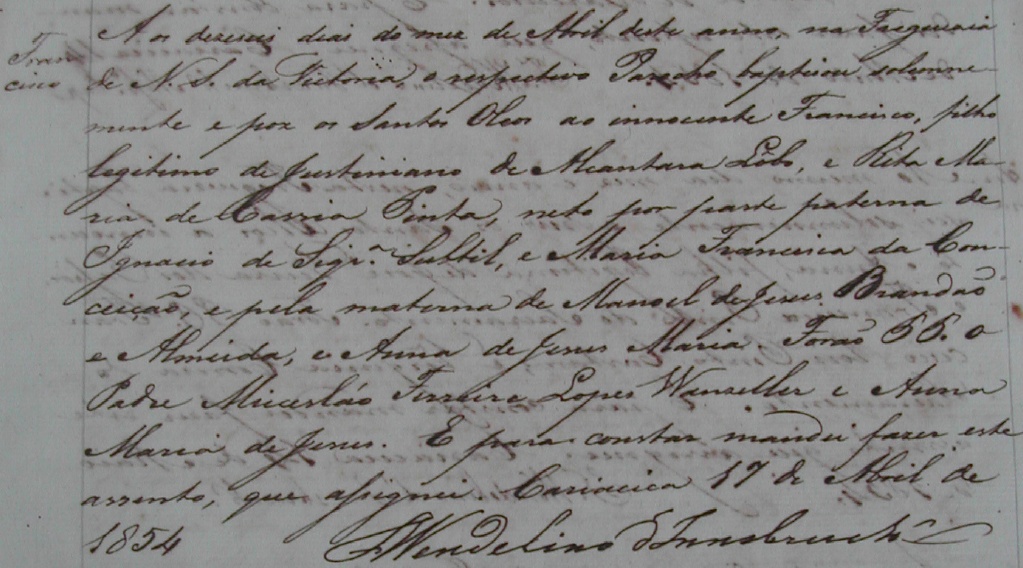 Aos dezeseis dias do mez de Abril deste anno, na Freguesia
Fran
cisco
de N. S. da Victoria, o respectivo Parocho baptisou solemne-
mente e poz os Santos Oleos ao innocente Francisco, filho
legitimo de Justiniano de Alcantara Lôbo, e Rita Ma-
ria de Cassia Pinta, neto por parte paterna de
Ignacio de Siqr.ª Subtil, e Maria Francisca da Con-
ceição, e pela materna de Manoel de Jesus Brandão
e Almeida, e Anna de Jesus Maria. Forão PP. o
Padre Micesláo Ferreira Lopes Wanzeller e Anna
Maria de Jesus. E para constar mandei fazer este
assento, que assignei. Cariacica 17 de Abril de
1854 Fr Wendelino d'Innsbruck